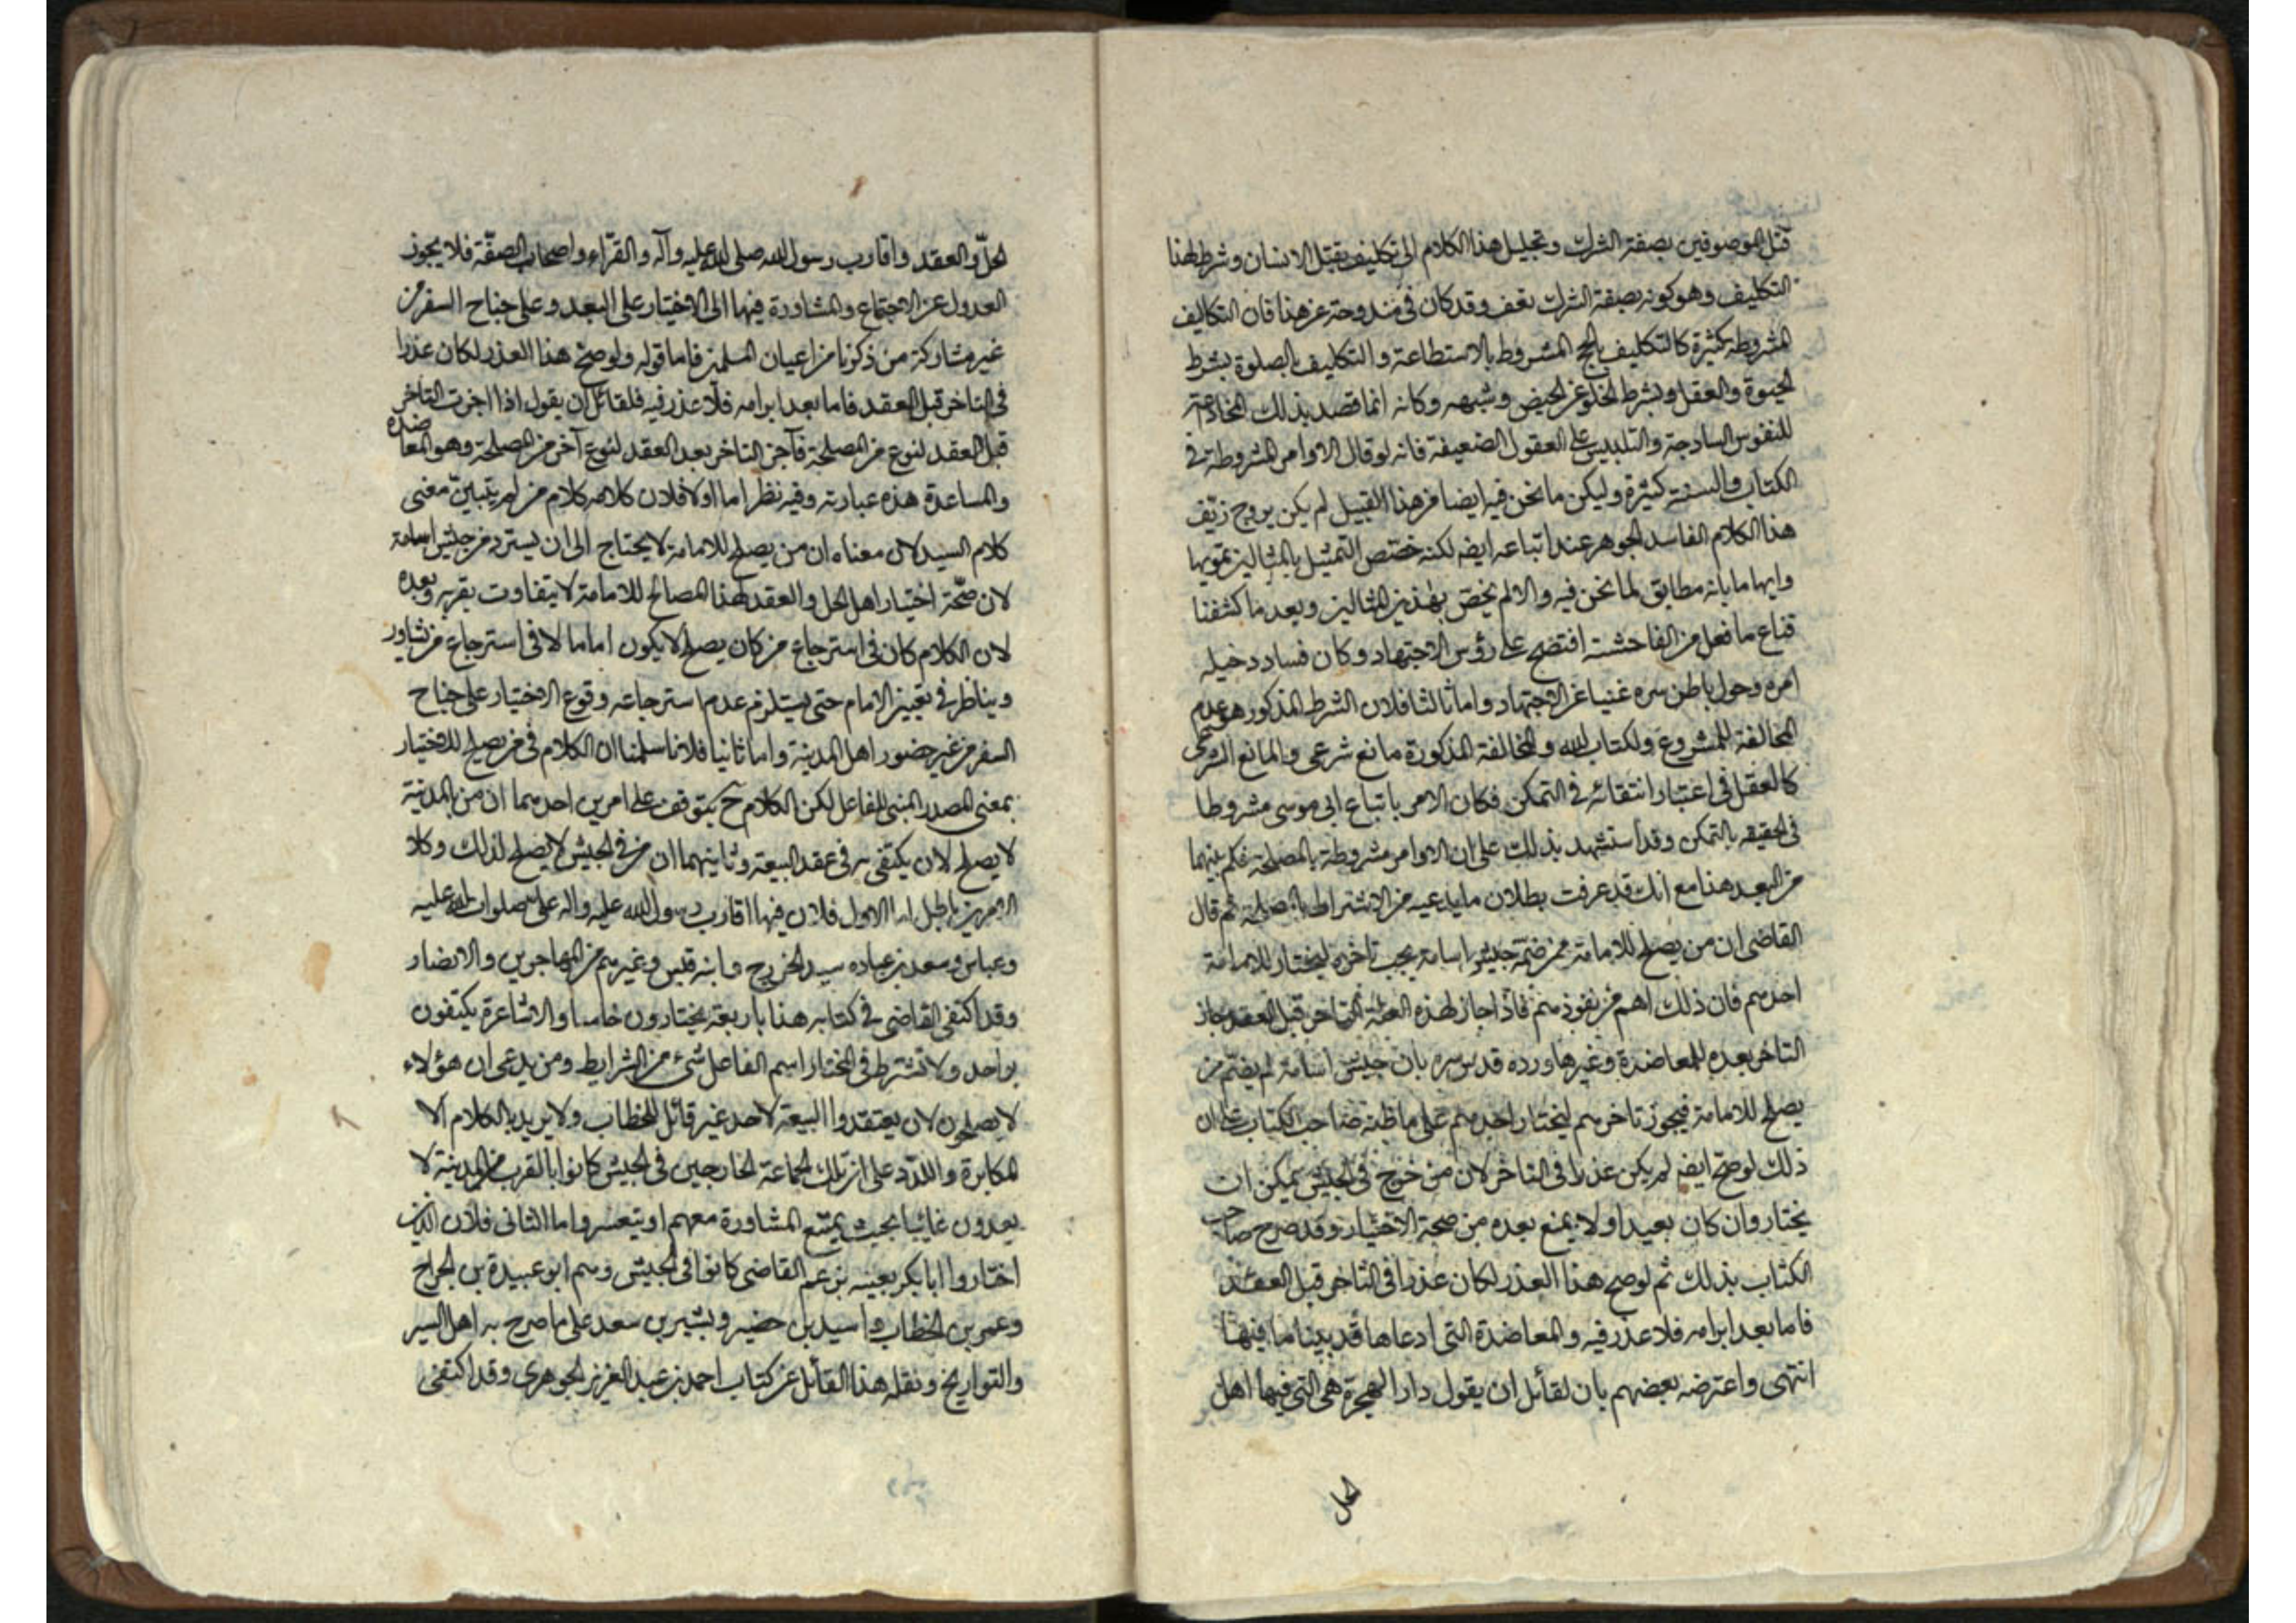 قتل الموصوفين بصفة الشرك وتحليل هذا الكلام الى تكليف بقتل الانسان وشرط لهذا
التكليف وهو كونه بصفة الشرك تعف وقد كان فى مندوحة عن هذا فان التكاليف
المشروطة كثيرة كالتكليف بالحج المشروط بالاستطاعة والتكليف بالصلوة بشرط
الحيوة والعقل وبشرط الخلو عن الحيض وشبهه وكانه انما قصد بذلك المخادعة
للنفوس الساذجة والتلبيس على العقول الضعيفة فانه لو قال الاوامر المشروطة فى
الكتاب والسنة كثيرة وليكن ما نحن فيه ايضا من هذا القبيل لم يكن يروج زيف
هذا الكلام الفاسد الجوهر عند اتباعه ايضا لكنه خصّص التمثيل بالمثالين تمويها
وايهاما بانه مطابق لما نحن فيه والا لم يخصّ بهذين المثالين وبعد ما كشفنا
قناع ما فعل من الفاحشة افتضح على رؤس الاجتهاد وكان فساد دخيله
امره وحول باطن سره غنيا عن الاجتهاد واما ثالثا فلان الشرط المذكور هو عدم
المخالفة للمشروع ولكتاب الله والمخالفة المذكورة مانع شرعى والمانع الشرعى
كالعقلى فى اعتبار انتفائه فى التمكن فكان الامر باتباع ابى موسى مشروطا
فى الحقيقه بالتمكن وقد استشهد بذلك على ان الاوامر مشروطة بالمصلحة فكم بينهما
من البعد هذا مع انك قد عرفت بطلان ما يدعيه من الاشتراط بالمصلحة ثم قال
القاضى ان من يصلح للامامة ممن ضمّه جيش اسامة يجب تاخره ليختار للامامة
احدهم فان ذلك اهم من نفوذهم فاذا جاز لهذه العلة التاخر قبل العقد جاز
التاخر بعده للمعاضدة وغيرها ورده قدس سره بان جيش اسامة لم يضم من
يصلح للامامة فيجوز تاخرهم ليختار احدهم على ما ظنه صاحب الكتاب على ان
ذلك لو صح ايضا لم يكن عذرا فى التاخر لان من خرج فى الجيش يمكن ان
يختار وان كان بعيدا ولا يمنع بعده من صحة الاختيار وقد صرح صاحب
الكتاب بذلك ثم لو صح هذا العذر لكان عذرا فى التاخر قبل العقد
فاما بعد ابرامه فلا عذر فيه والمعاضدة التى ادعاها قد بينا ما فيها
انتهى واعترضه بعضهم بان لقائل ان يقول دار الهجرة هى التى فيها اهل
الحل
الحلّ والعقد واقارب رسول الله صلى الله عليه وآله والقرّاء واصحاب الصفّة فلا يجوز
العدول عن الاجتماع والمشاورة فيها الى الاختيار على البعد وعلى جناح السفر من
غير مشاركة من ذكرنا من اعيان المسلمين فاما قوله ولو صح هذا العذر لكان عذرا
فى التاخر قبل العقد فاما بعد ابرامه فلا عذر فيه فلقائل ان يقول اذا اجزت التاخر
قبل العقد لنوع من المصلحة فآجز التاخر بعد العقد لنوع آخر من المصلحة وهو المعاضدة
والمساعدة هذه عبارته وفيه نظر اما اولا فلان كلامه كلام من لم يتبيّن معنى
كلام السيد لان معناه ان من يصلح للامامة لا يحتاج الى ان يسترد من جيش اسامة
لان صحّة اختيار اهل الحل والعقد لهذا المصالح للامامة لا يتفاوت بقربه وبعده
لان الكلام كان فى استرجاع من كان يصلح لان يكون اماما لا فى استرجاع من تشاور
ويناظر فى تعيين الامام حتى يستلزم عدم استرجاعه وقوع الاختيار على جناح
السفر من غير حضور اهل المدينة واما ثانيا فلانا سلمنا ان الكلام فى من يصلح للاختيار
بمعنى المصدر المبنى للفاعل لكن الكلام ح يتوقف على امرين احدهما ان من بالمدينة
لا يصلح لان يكتفى به فى عقد البيعة وثانيهما ان من فى الجيش لا يصلح لذلك وكلا
الامرين باطل اما الاول فلان فيها اقارب رسول الله عليه واله على صلوات الله عليه
وعباس وسعد بن عباده سيد الخزرج وابنه قيس وغيرهم من المهاجرين والانصار
وقد اكتفى القاضى فى كتابه هذا باربعة يختارون خامسا والاشاعرة يكتفون
بواحد ولا تشترط فى المختار اسم الفاعل شئ من الشرايط ومن يدعى ان هؤلاء
لا يصلحون لان يعتقدوا البيعة لاحد غير قائل للخطاب ولا يريد بالكلام الا
المكابرة واللدد على ان تلك الجماعة الخارجين فى الجيش كانوا بالقرب من المدينة لا
يعدون غائبا بحيث يمتنع المشاورة معهم او يتعسر واما الثانى فلان الذين
اختاروا ابا بكر بعينه بزعم القاضى كانوا فى الجيش وهم ابو عبيدة بن الجراح
وعمر بن الخطاب واسيد بن حضير وبشير بن سعد على ما صرح به اهل السير
والتواريخ ونقله هذا القائل عن كتاب احمد بن عبد العزيز الجوهرى وقد اكتفى